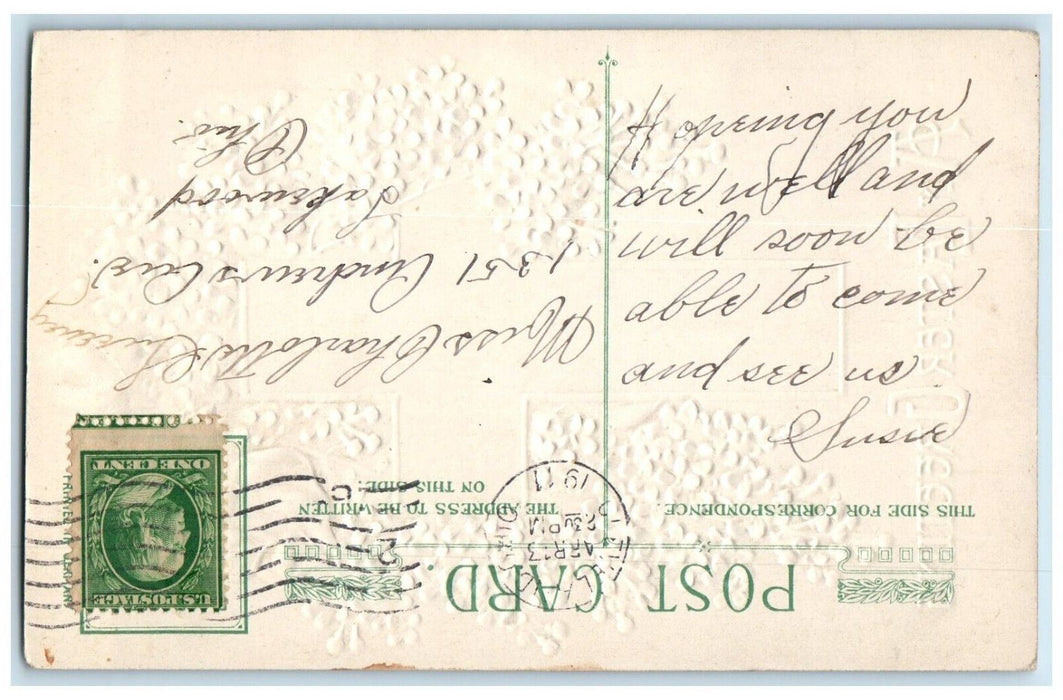 Hopeing you
are well and
will soon be
able to come
and see us.
Susie
POST CARD.
THIS SIDE FOR CORRESPONDENCE.
THE ADDRESS TO BE WRITTEN
ON THIS SIDE.
Miss Charlotte
1351 Andrews Ave.
Lakewood
Ohio.
U.S. POSTAGE
ONE CENT
APR 13
PM
1911
OHIO
PRINTED IN GERMANY